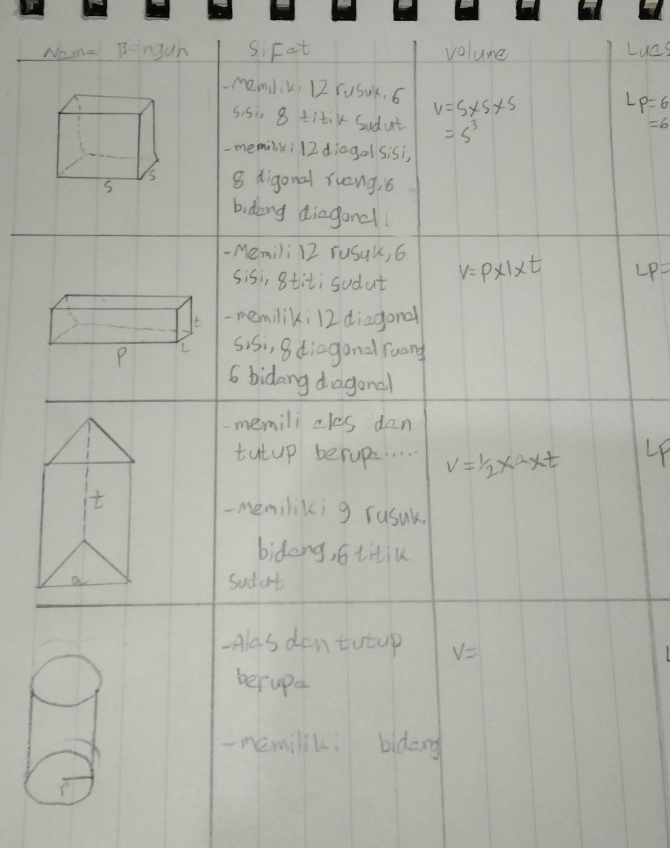 Nama Bangun
Sifat
Volume
Luas
-Memiliki 12 rusuk, 6
sisi, 8 titik sudut.
-memiliki 12 diagol sisi,
8 digonal ruang, 6
bidang diagonal
V=S×S×S
= S³
Lp=6
=6
s
s
-Memili 12 rusuk, 6
sisi, 8 titi sudut
-memiliki 12 diagonal
sisi, 8 diagonal ruang
6 bidang diagonal
V=P×l×t
Lp=
t
L
P
-memili alas dan
tutup berupa.....
-Memiliki 9 rusuk.
bidang, 6 titik
sudut
V=½×a×t
Lp
t
a
-Alas dan tutup
berupa
-memiliki bidang
V=
L
r